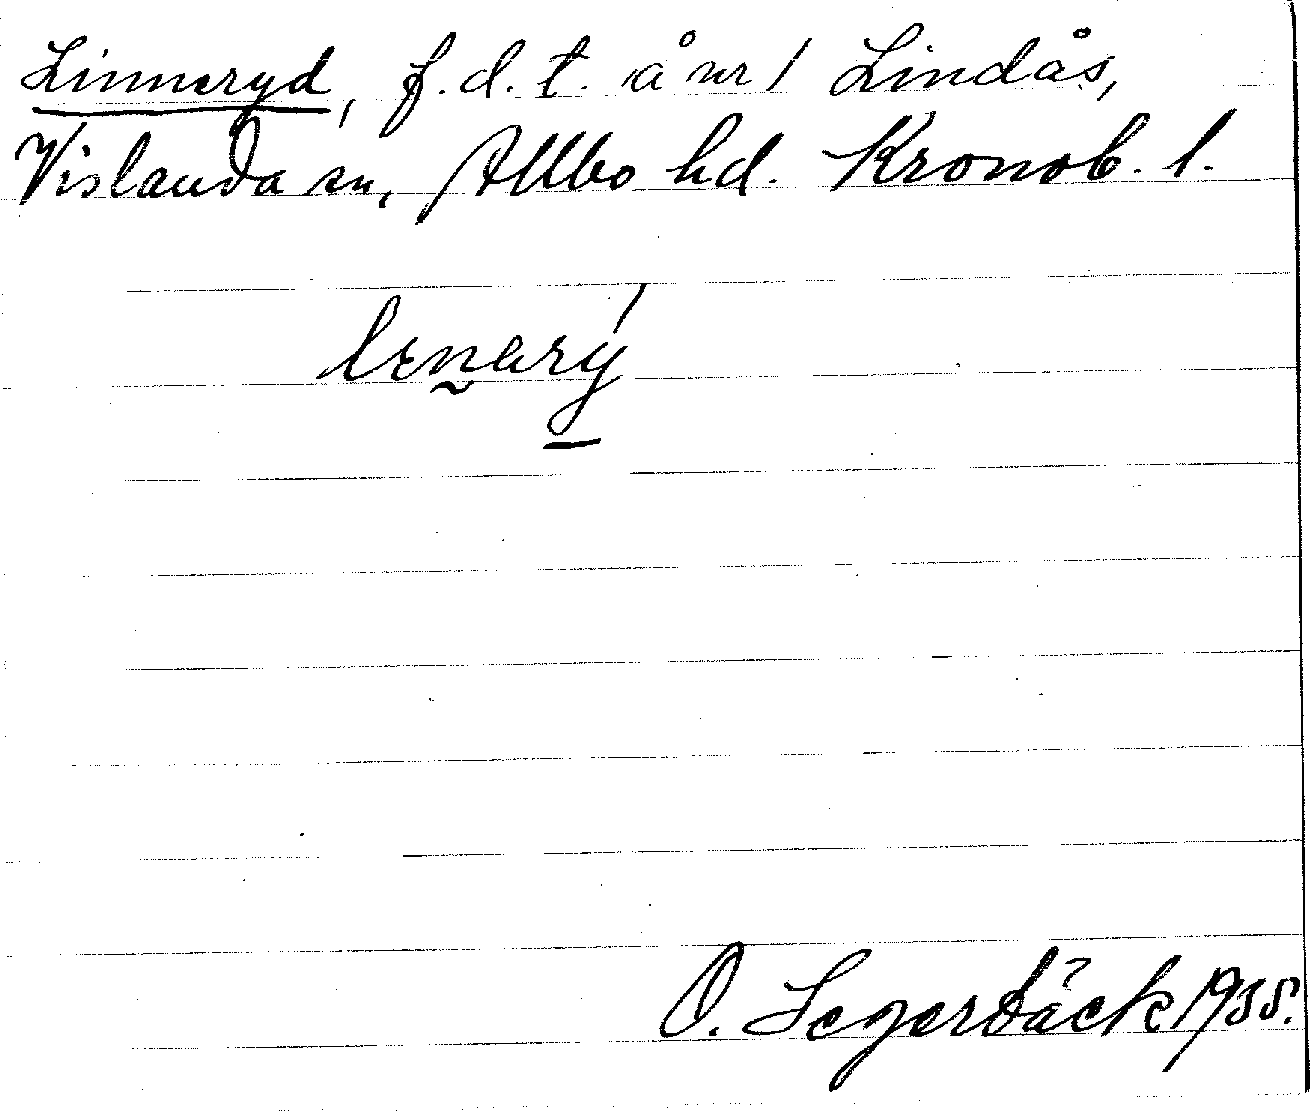 Linneryd, f.d.t. å nr 1 Lindås,
Vislanda sn, Allbo hd. Kronob. l.
lenarý
O. Segerbäck 1935.